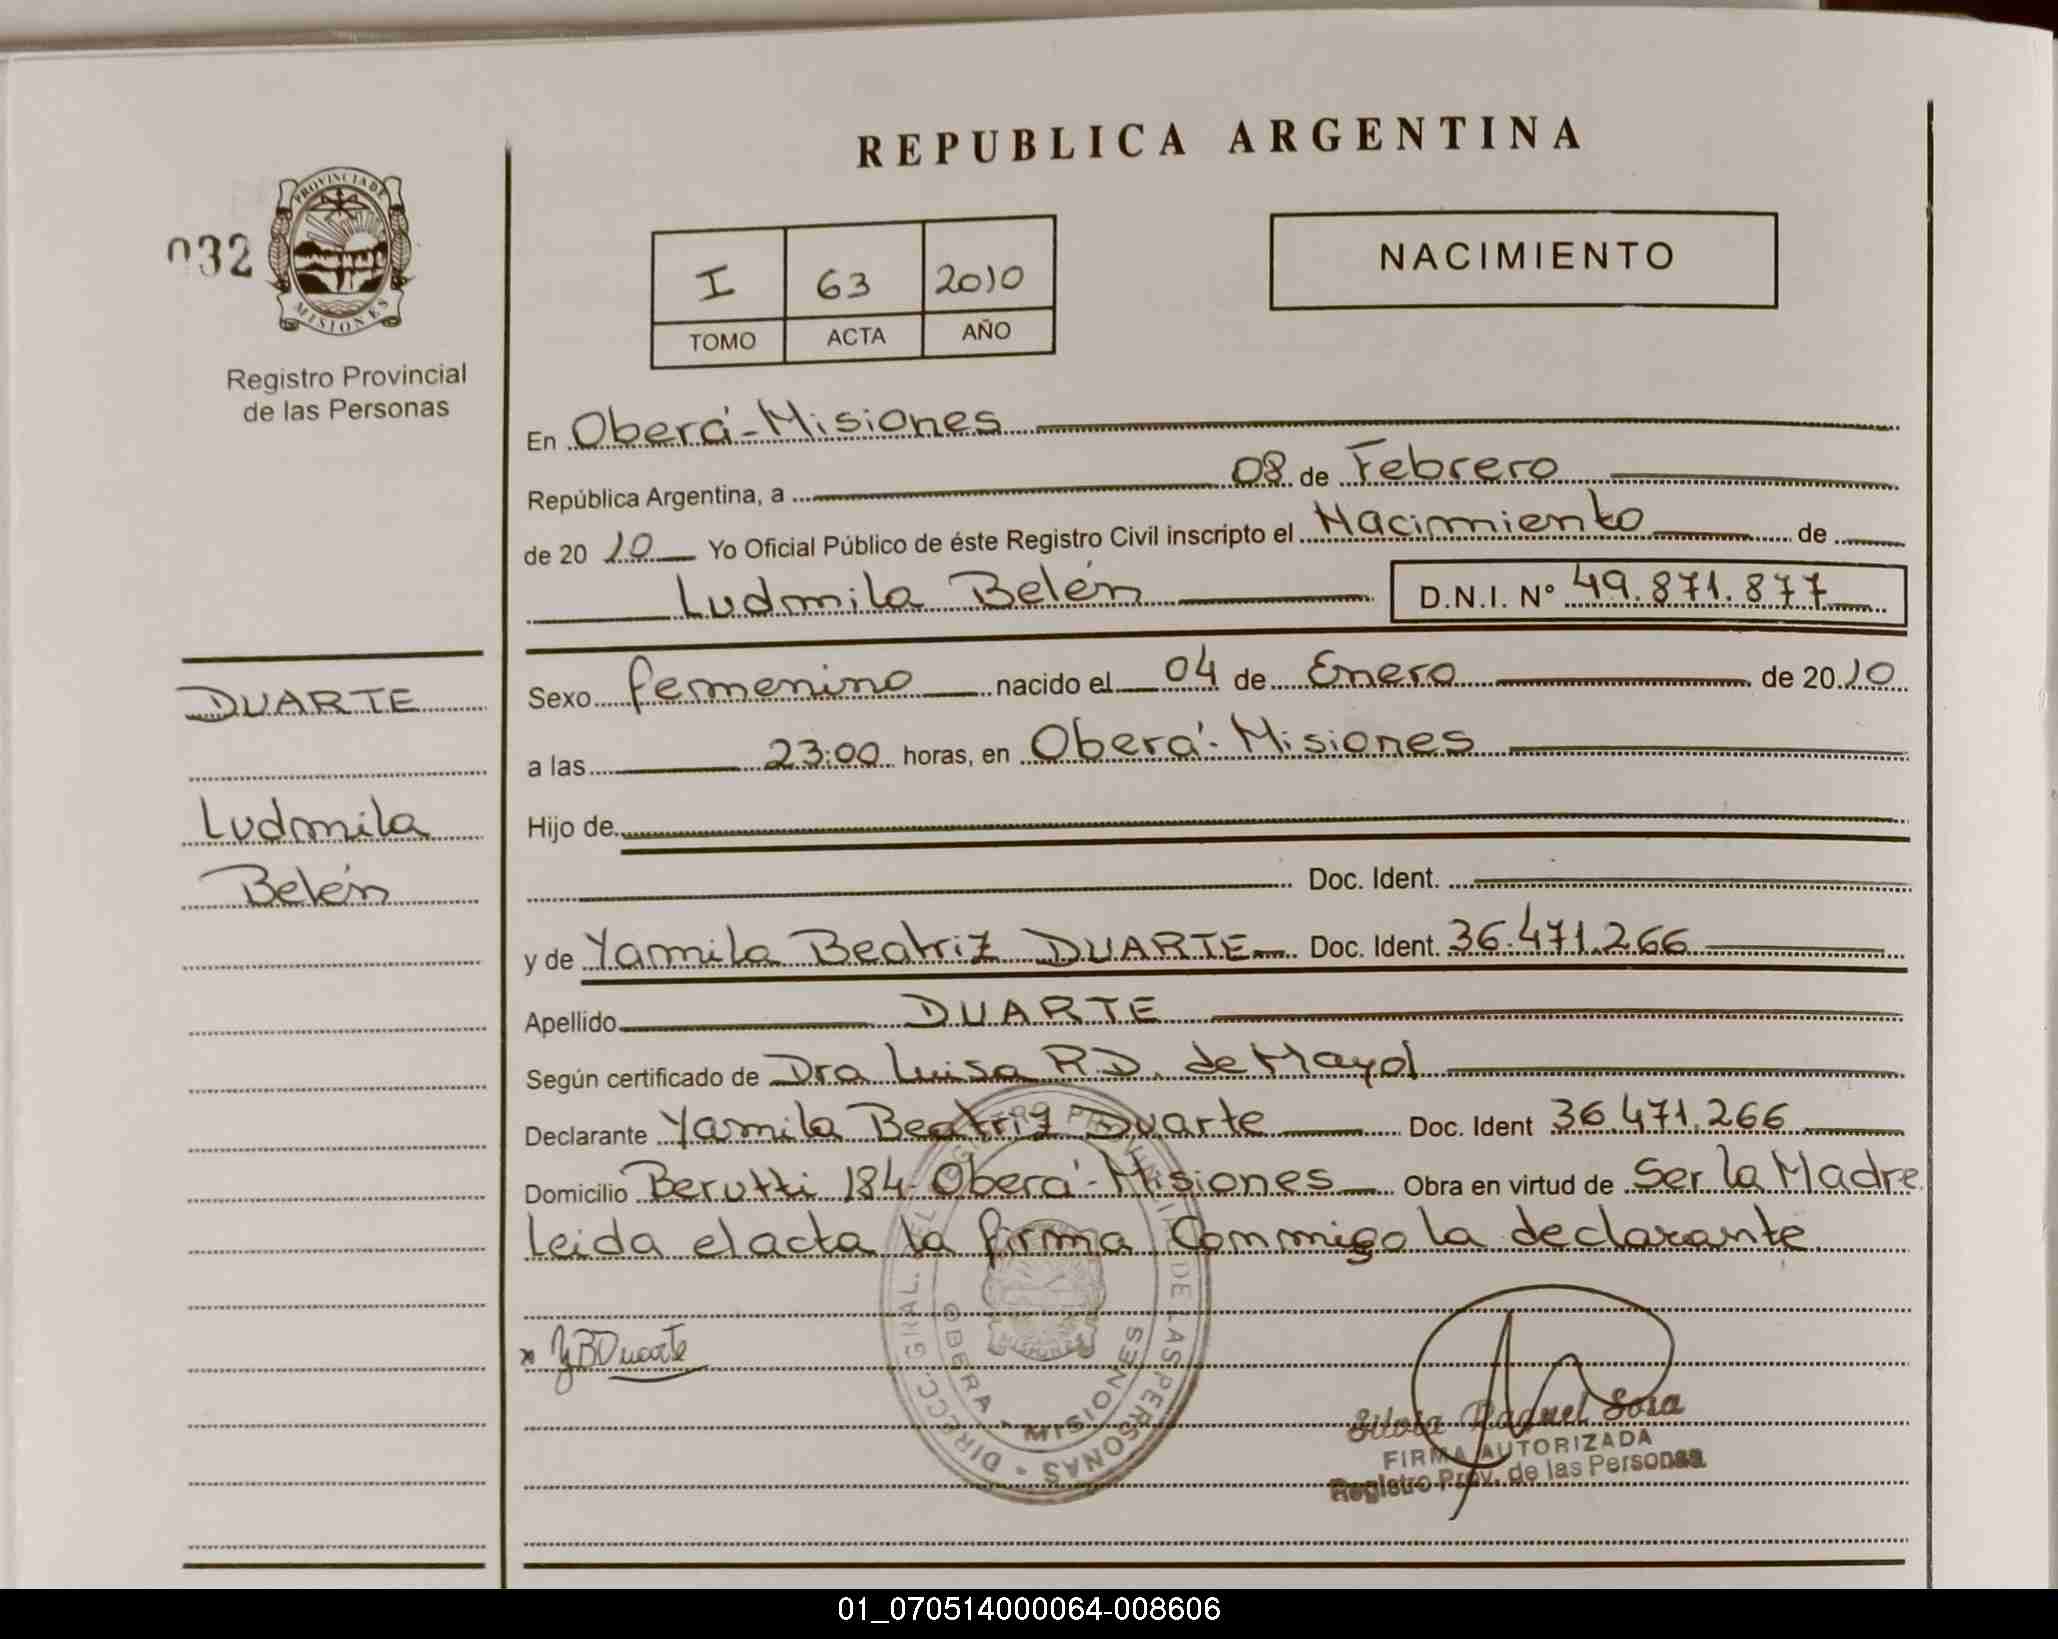 REPUBLICA ARGENTINA
032
PROVINCIA DE
MISIONES
Registro Provincial
de las Personas
I 63 2010
TOMO ACTA AÑO
NACIMIENTO
En Oberá-Misiones
República Argentina, a 08 de Febrero
de 2010 Yo Oficial Público de éste Registro Civil inscripto el Nacimiento de
Ludmila Belén D.N.I. Nº 49.871.877
DUARTE
Ludmila
Belén
Sexo femenino nacido el 04 de Enero de 2010
a las 23:00 horas, en Oberá-Misiones
Hijo de
Doc. Ident.
y de Yamila Beatriz DUARTE Doc. Ident. 36.471.266
Apellido DUARTE
Según certificado de Dra Luisa R.D. de Mayol
Declarante Yamila Beatriz Duarte Doc. Ident 36.471.266
Domicilio Berutti 184-Oberá-Misiones Obra en virtud de Ser la Madre
leida el acta la firma Conmigo la declarante
x YBDuarte
DIRECC. GRAL. DEL REGISTRO PROVINCIAL DE LAS PERSONAS
OBERA - MISIONES
Silvia Raquel Sosa
FIRMA AUTORIZADA
Registro Prov. de las Personas
01_070514000064-008606